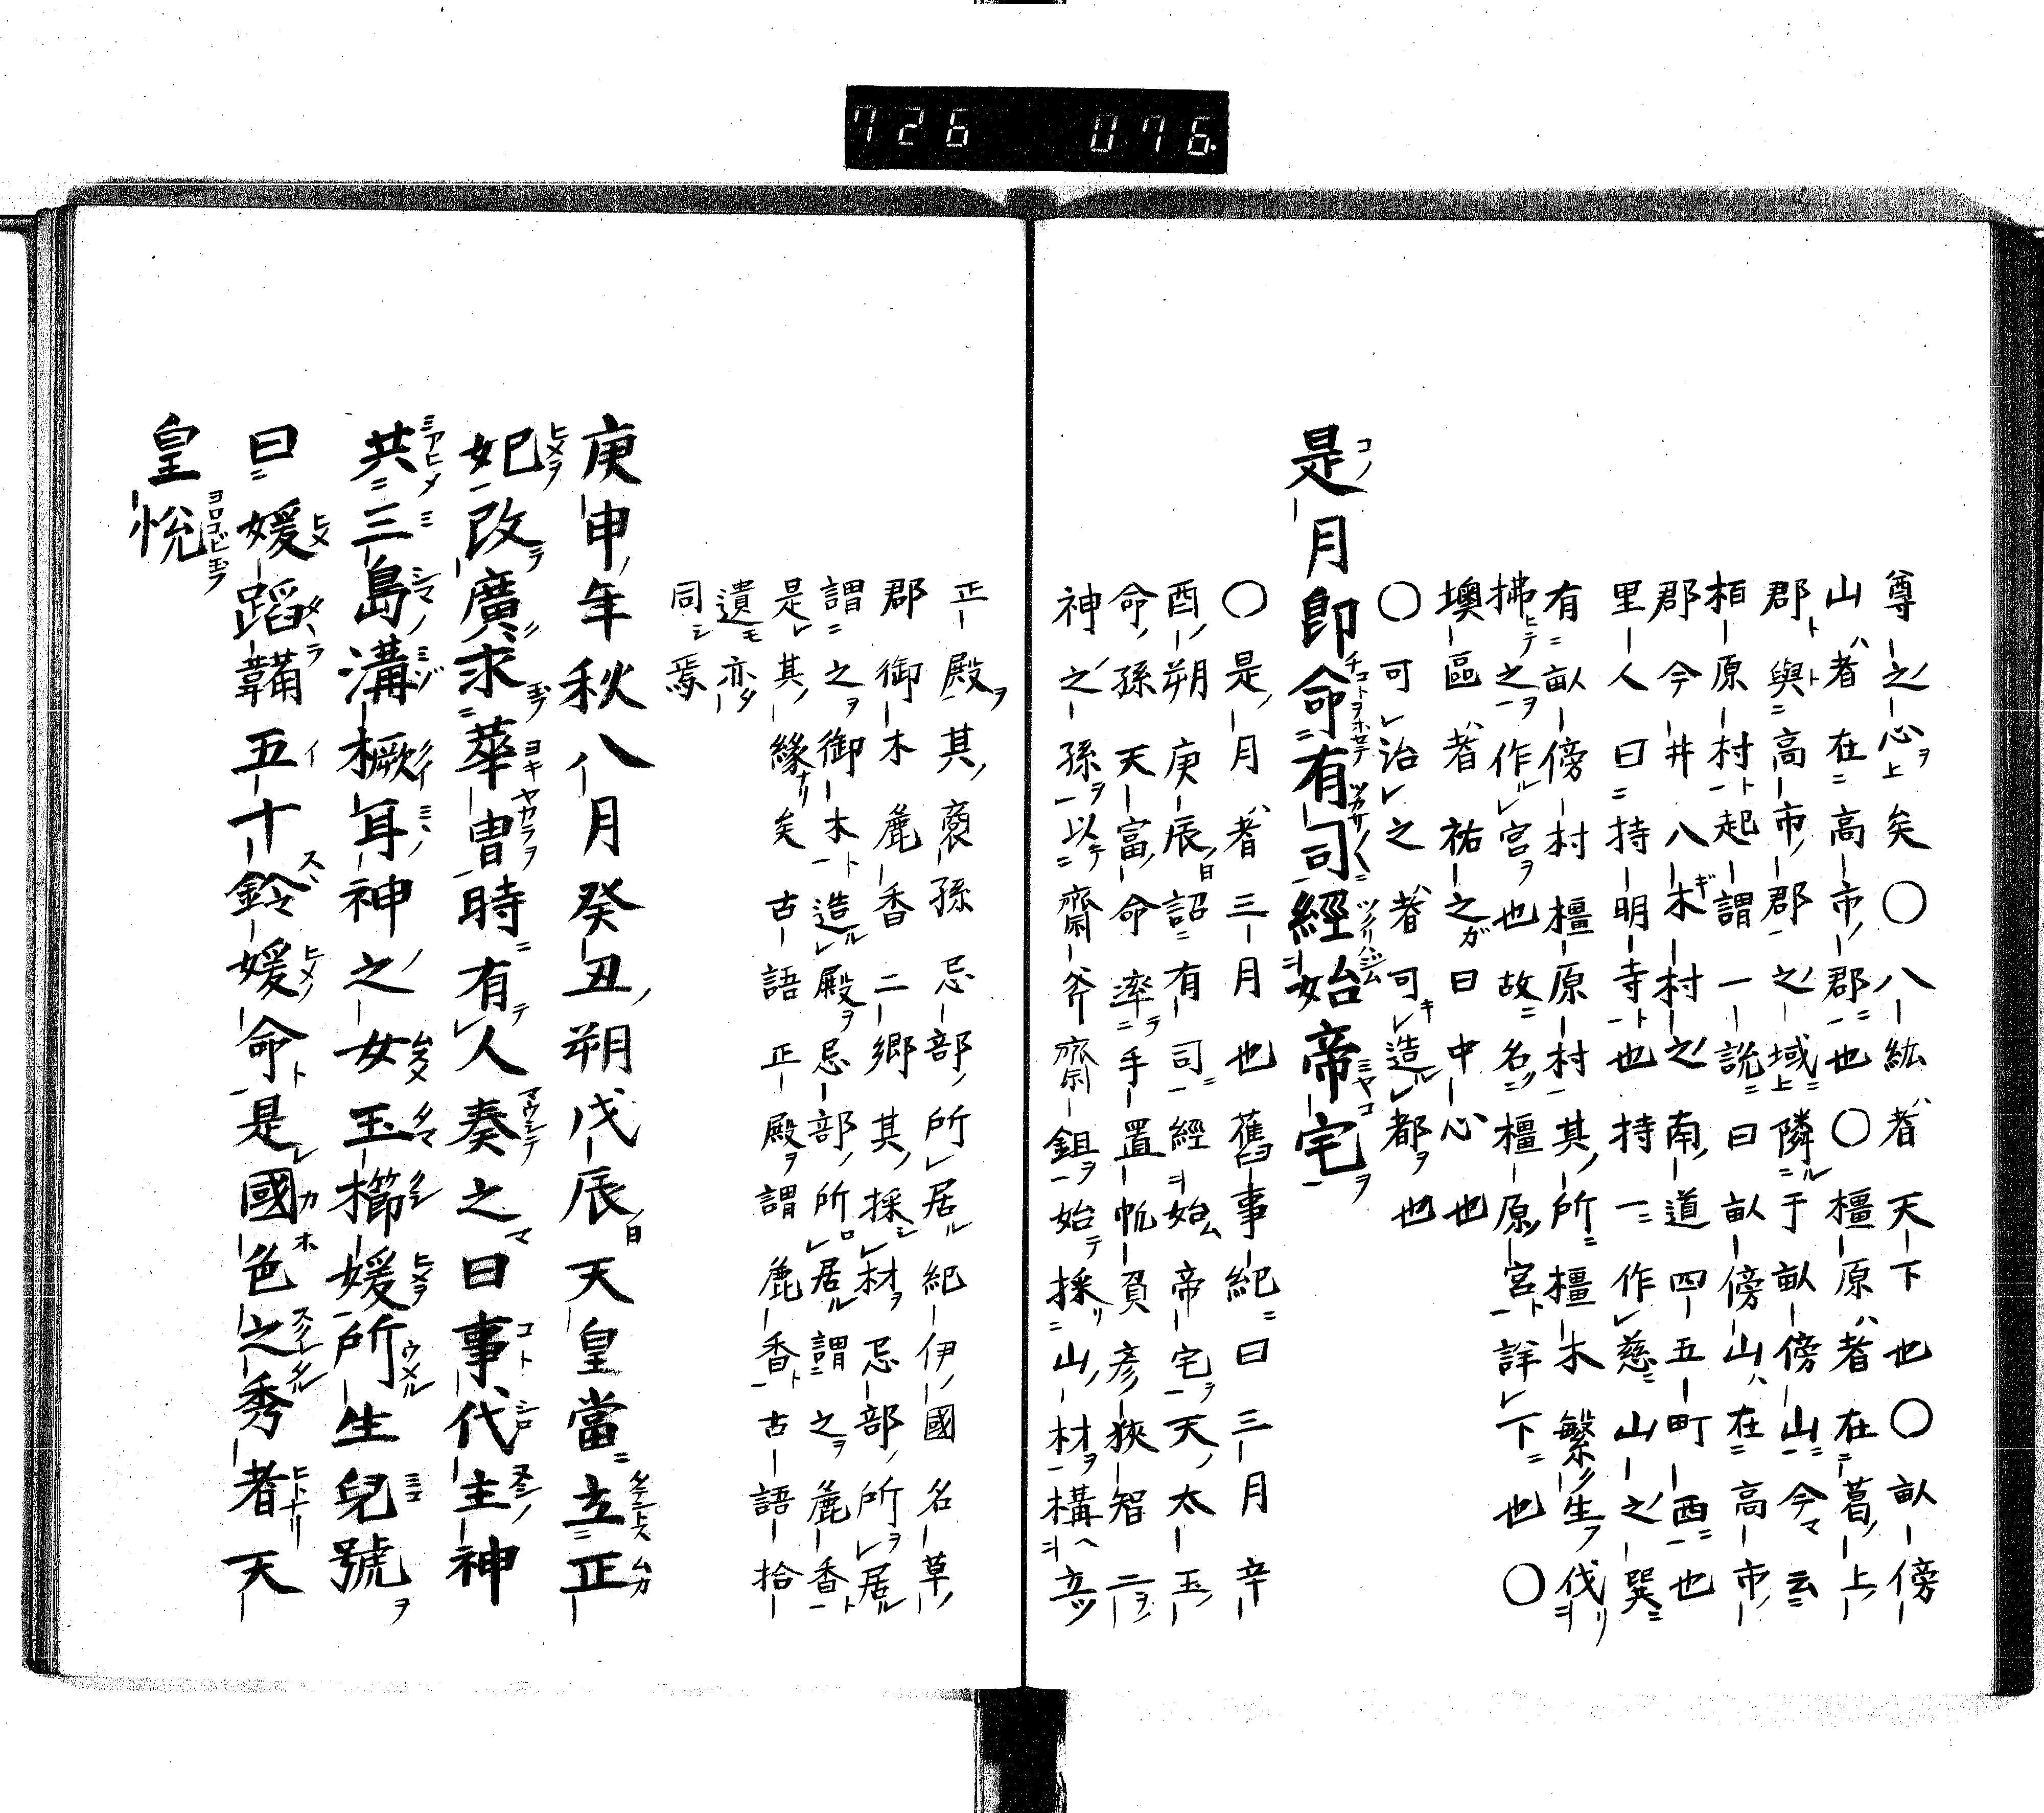 726 076.
尊之心矣〇八紘者天下也〇畝傍
山者在高市郡也〇橿原者在葛上
郡與高市郡之域隣于畝傍山今云
栢原村起謂一說曰畝傍山在高市
郡今井八木村之南道四五町西也
里人曰持明寺也持一作慈山之巽
有畝傍村橿原村其所橿木繁生伐
拂之作宮也故名橿原宮詳下也〇
墺區者祐之曰中心也
〇可治之者可造都也
是月即命有司經始帝宅
〇是月者三月也舊事紀曰三月辛
酉朔庚辰詔有司經始帝宅天太玉
命孫天富命率手置帆負彥狹智二
神之孫以齋斧齋鉏始採山材構立
正殿其裔孫忌部所居紀伊國名草
郡御木麁香二鄉其採材忌部所居
謂之御木造殿忌部所居謂之麁香
是其緣矣古語正殿謂麁香古語拾
遺亦同焉
庚申年秋八月癸丑朔戊辰天皇當立正
妃改廣求華胄時有人奏之曰事代主神
共三島溝橛耳神之女玉櫛媛所生兒號
曰媛蹈鞴五十鈴媛命是國色之秀者天
皇悅